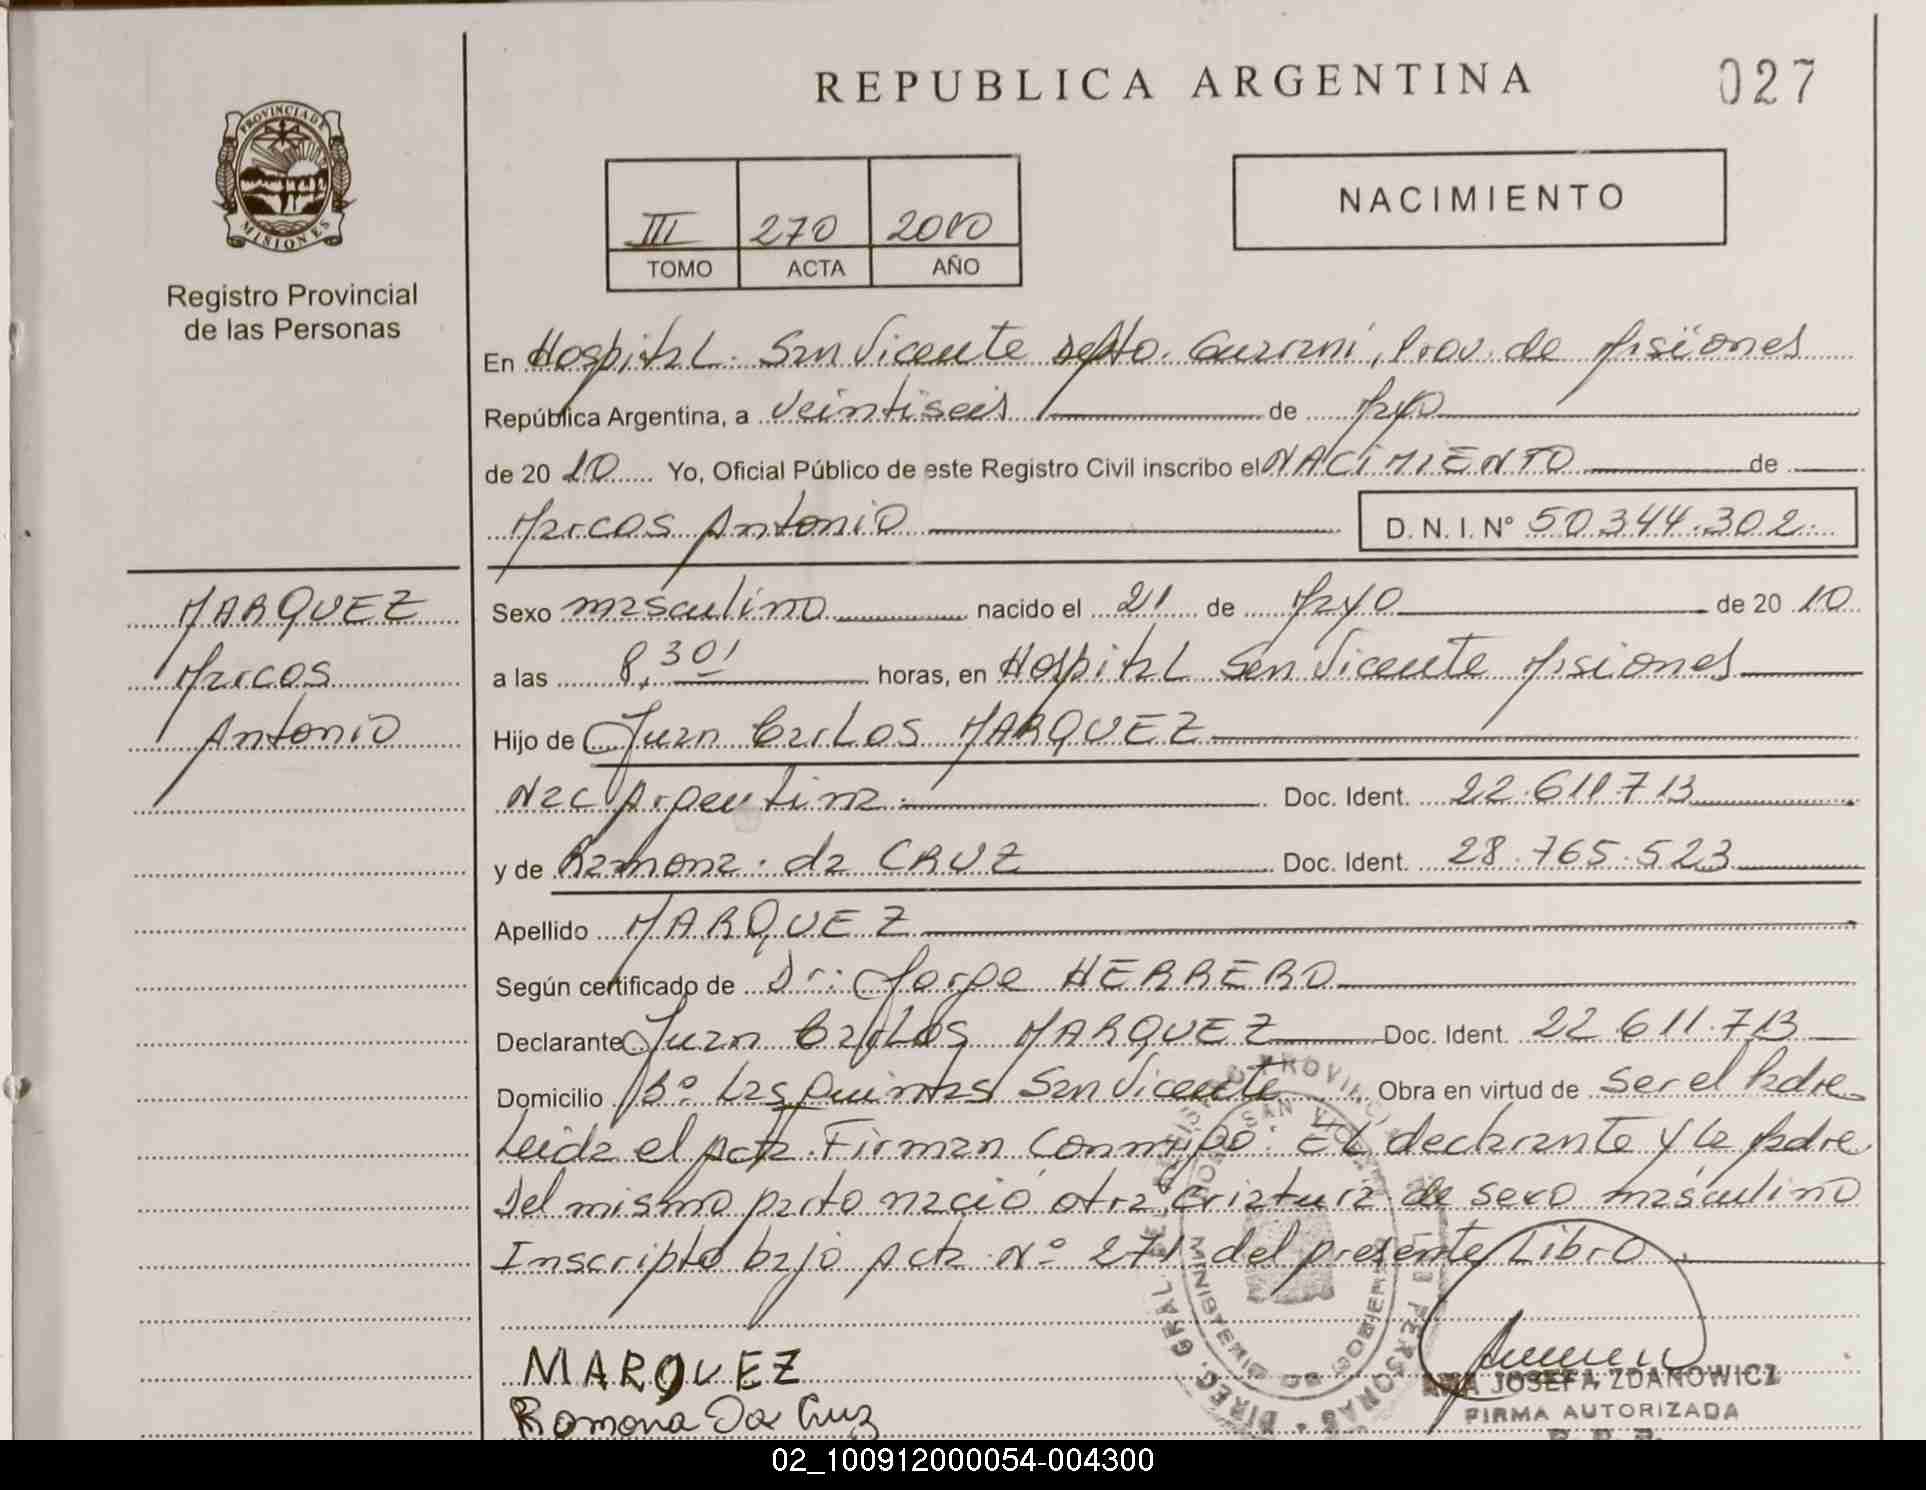 REPUBLICA ARGENTINA
027
PROVINCIA DE
MISIONES
Registro Provincial
de las Personas
III 270 2010
TOMO ACTA AÑO
NACIMIENTO
En Hospital. San Vicente depto. Guarani, Prov. de Misiones
República Argentina, a veintiseis de Mayo
de 20 10 Yo, Oficial Público de este Registro Civil inscribo el NACIMIENTO de
Marcos Antonio D. N. I. N° 50.344.302.
MARQUEZ
Marcos
Antonio
Sexo masculino nacido el 21 de Mayo de 20 10
a las 8,30 horas, en Hospital San Vicente Misiones
Hijo de Juan Carlos MARQUEZ
Nac Argentina. Doc. Ident. 22.611.713
y de Ramona. da CRUZ Doc. Ident. 28.765.523
Apellido MARQUEZ
Según certificado de Dr: Jorge HERRERO
Declarante Juan Carlos MARQUEZ Doc. Ident. 22.611.713
Domicilio B° Las Quintas San Vicente Obra en virtud de ser el Padre
Leida el Acta. Firman Conmigo. El declarante y la Madre
Del mismo parto nació otra criatura de sexo masculino
Inscripto bajo Acta N° 271 del presente Libro.
MARQUEZ
Ramona Da Cruz
JOSEFA ZDANOWICZ
FIRMA AUTORIZADA
02_100912000054-004300